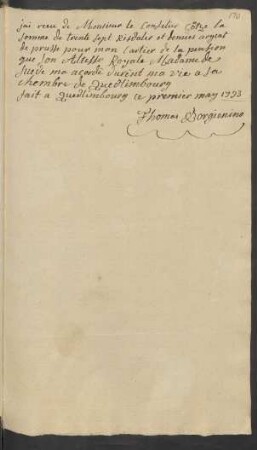 170
jai recu de Monsieur le Conselier la
somme de trente sept Risdaler et demies argent
de prusse pour mon cartier de la pension
que son Altesse Royale Madame de
suede ma acordé durent ma vie a sa
chambre de quedlimbourg
fait a quedlimbourg ce premier may 1793
Thomas Borgienino